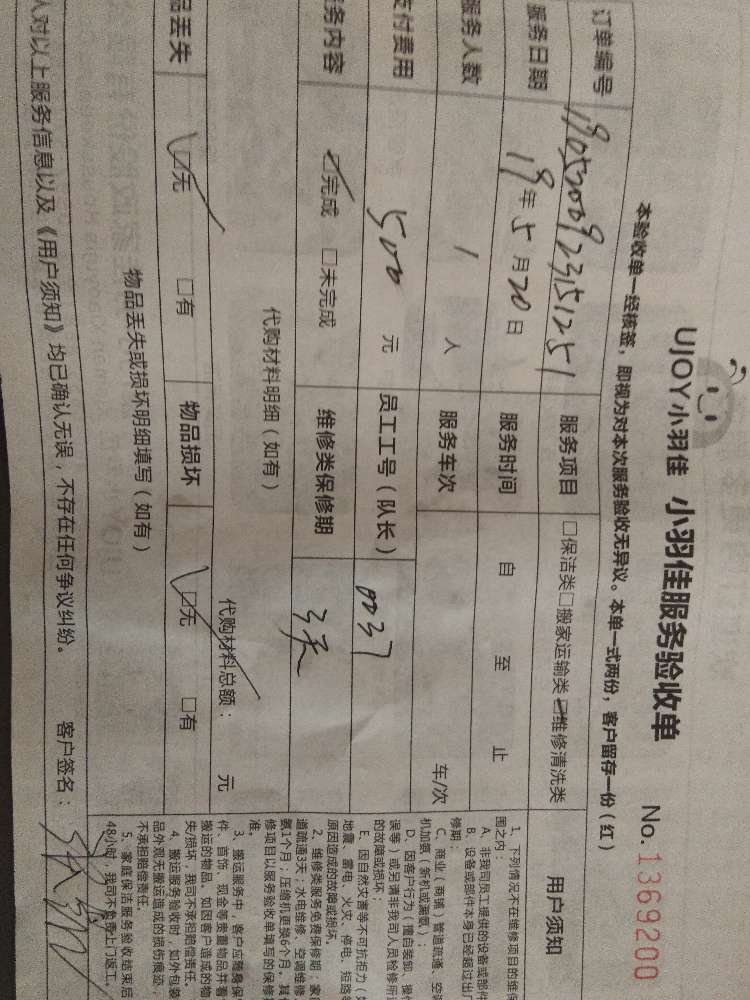 UJOY小羽佳 小羽佳服务验收单 No.1369200
本验收单一经核签，即视为对本次服务验收无异议。本单一式两份，客户留存一份（红）
订单编号 1905300923151251 服务项目 □保洁类□搬家运输类☑维修清洗类
服务日期 19年5月20日 服务时间 自 至 止
服务人数 1 人 服务车次 车/次
支付费用 500 元 员工工号（队长） 0037
务内容 ☑完成 □未完成 维修类保修期 3天
代购材料明细（如有） 代购材料总额： 元
品丢失 ☑无 □有 物品损坏 ☑无 □有
物品丢失或损坏明细填写（如有）
人对以上服务信息以及《用户须知》均已确认无误，不存在任何争议纠纷。 客户签名：
用户须知
1、下列情况不在维修项目的维保
围之内：
A、非我司员工提供的设备或部件
B、设备或部件本身已经超过出厂
修期；
C、商业（商铺）管道疏通、空调
机加氨（新机或漏氨）；
D、因客户行为（擅自装卸、操作
误等）或另请非我司人员检修所
的故障或损坏
E、因自然灾害等不可抗拒力（如
地震、雷电、火灾、停电、拒盗等
原因造成的故障或损坏。
2、维修类服务免费保修期：家庭
道疏通3天；水电维修、空调维修、
氨1个月；压缩机更换6个月，其他
修项目以服务验收单填写的保修
准。
3、搬运服务中，客户应随身保
件、首饰、现金等贵重物品并看
搬运的物品、如因客户造成的物
失/损坏，我司不承担赔偿责任。
4、搬运服务验收时，如外包装
品外观无搬运造成的损伤痕迹，
不承担赔偿责任。
5、家庭保洁服务验收结束后
48小时，我司不负免费上门返工。